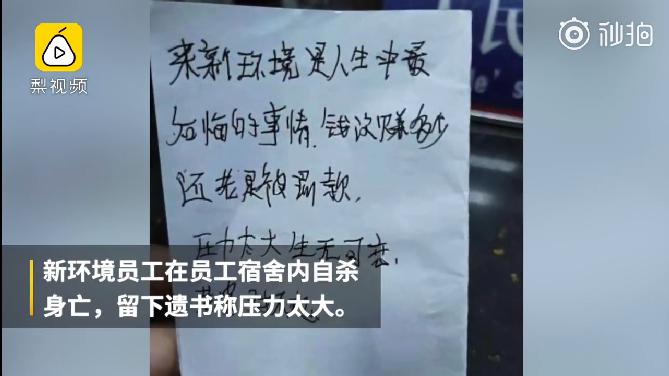 梨视频
秒拍
民
e's
来新环境是人生中最
的事情,钱没赚多少
还老是被罚款,
压力太大生无可恋,
新环境员工在员工宿舍内自杀
身亡，留下遗书称压力太大。